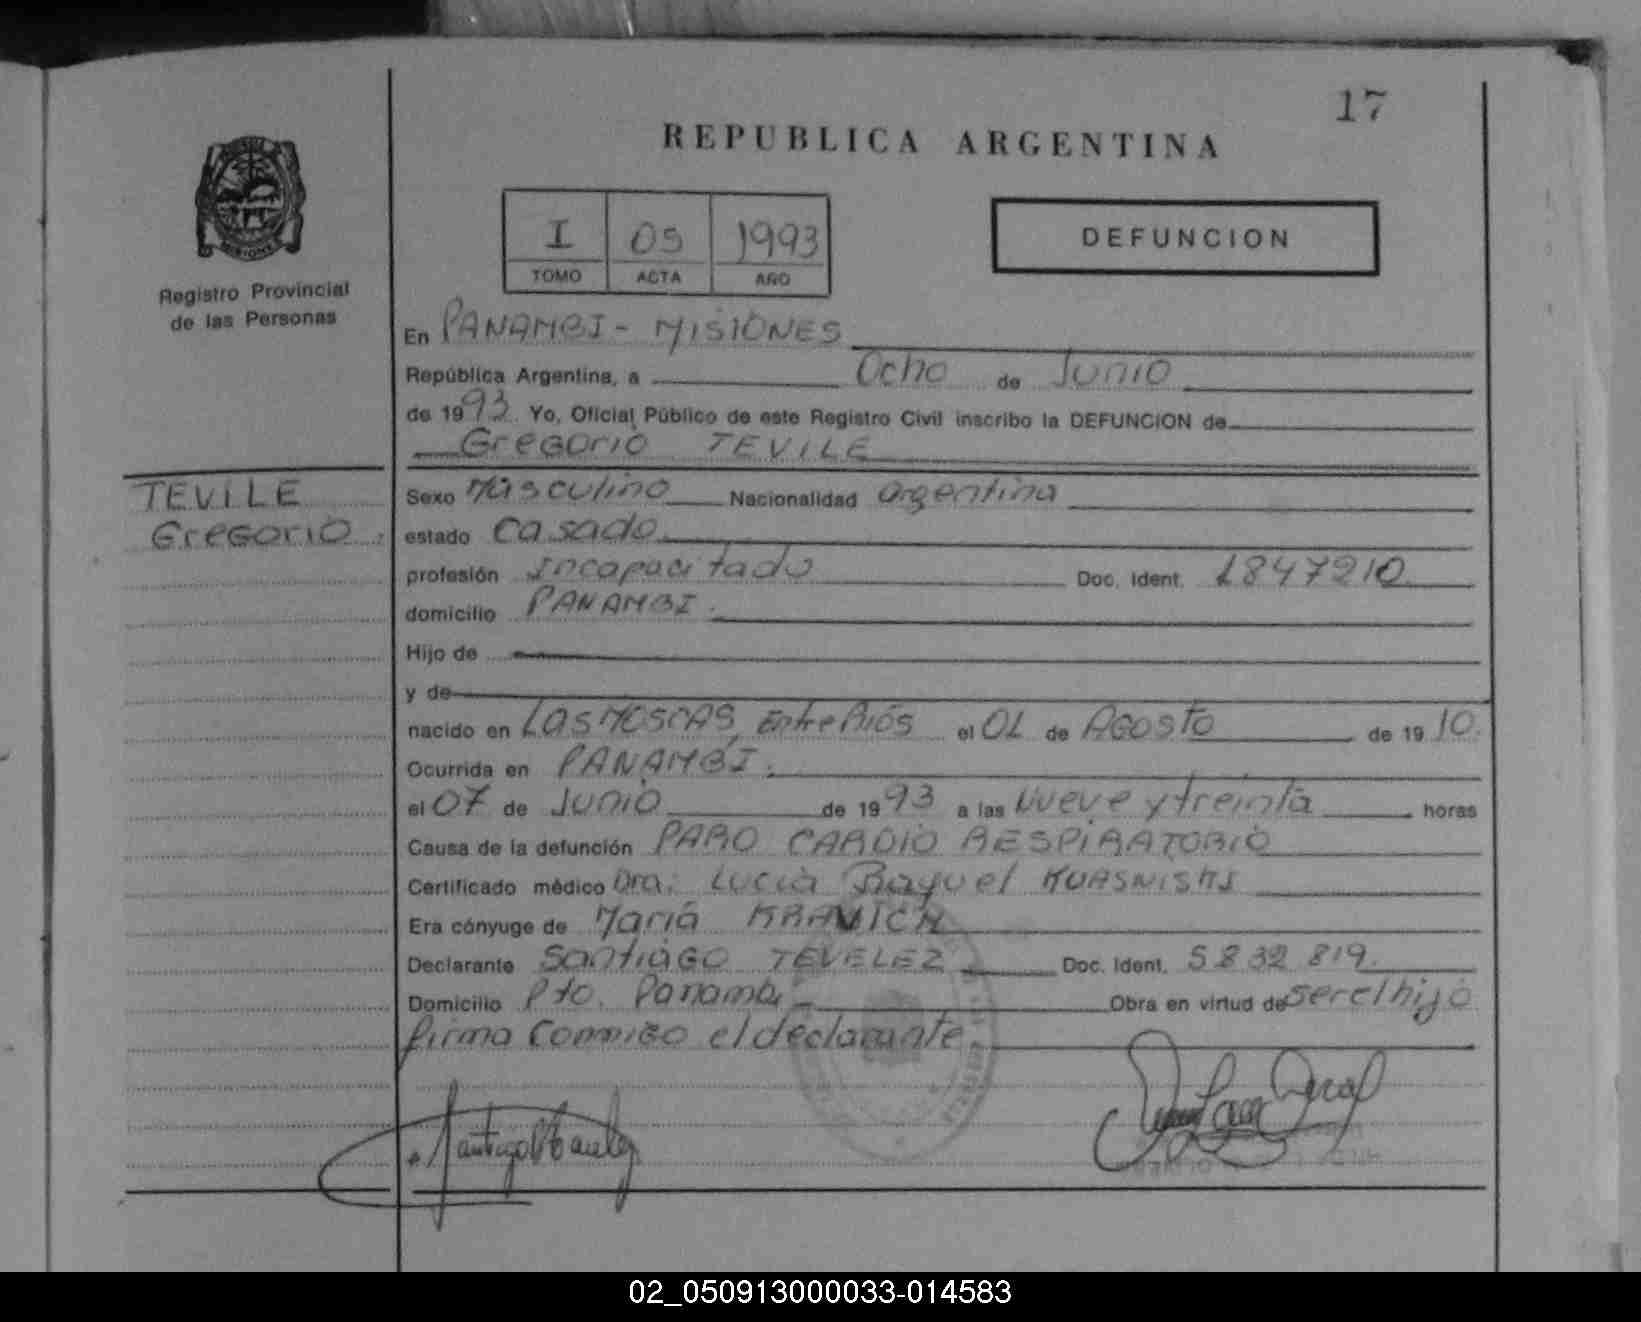 17
REPUBLICA ARGENTINA
I 05 1993
TOMO ACTA AÑO
DEFUNCION
Registro Provincial
de las Personas
En PANAMBI - MISIONES
República Argentina, a Ocho de Junio
de 1993. Yo, Oficial Público de este Registro Civil inscribo la DEFUNCION de
Gregorio TEVILE
TEVILE
Gregorio.
Sexo Masculino Nacionalidad argentina
estado casado.
profesión Incapacitado Doc. Ident. 1847210
domicilio PANAMBI.
Hijo de
y de
nacido en LAS MOSCAS, Entre Ríos el 01 de AGOSTO de 1910.
Ocurrida en PANAMBI.
el 07 de Junio de 1993 a las Nueve y treinta horas
Causa de la defunción PARO CARDIO RESPIRATORIO
Certificado médico Dra. Lucia Raquel
Era cónyuge de María KRAVICH
Declarante Santiago TEVELEZ Doc. Ident. 5832819.
Domicilio Pto. Panambi - Obra en virtud de ser el hijo
firma conmigo el declarante
02_050913000033-014583